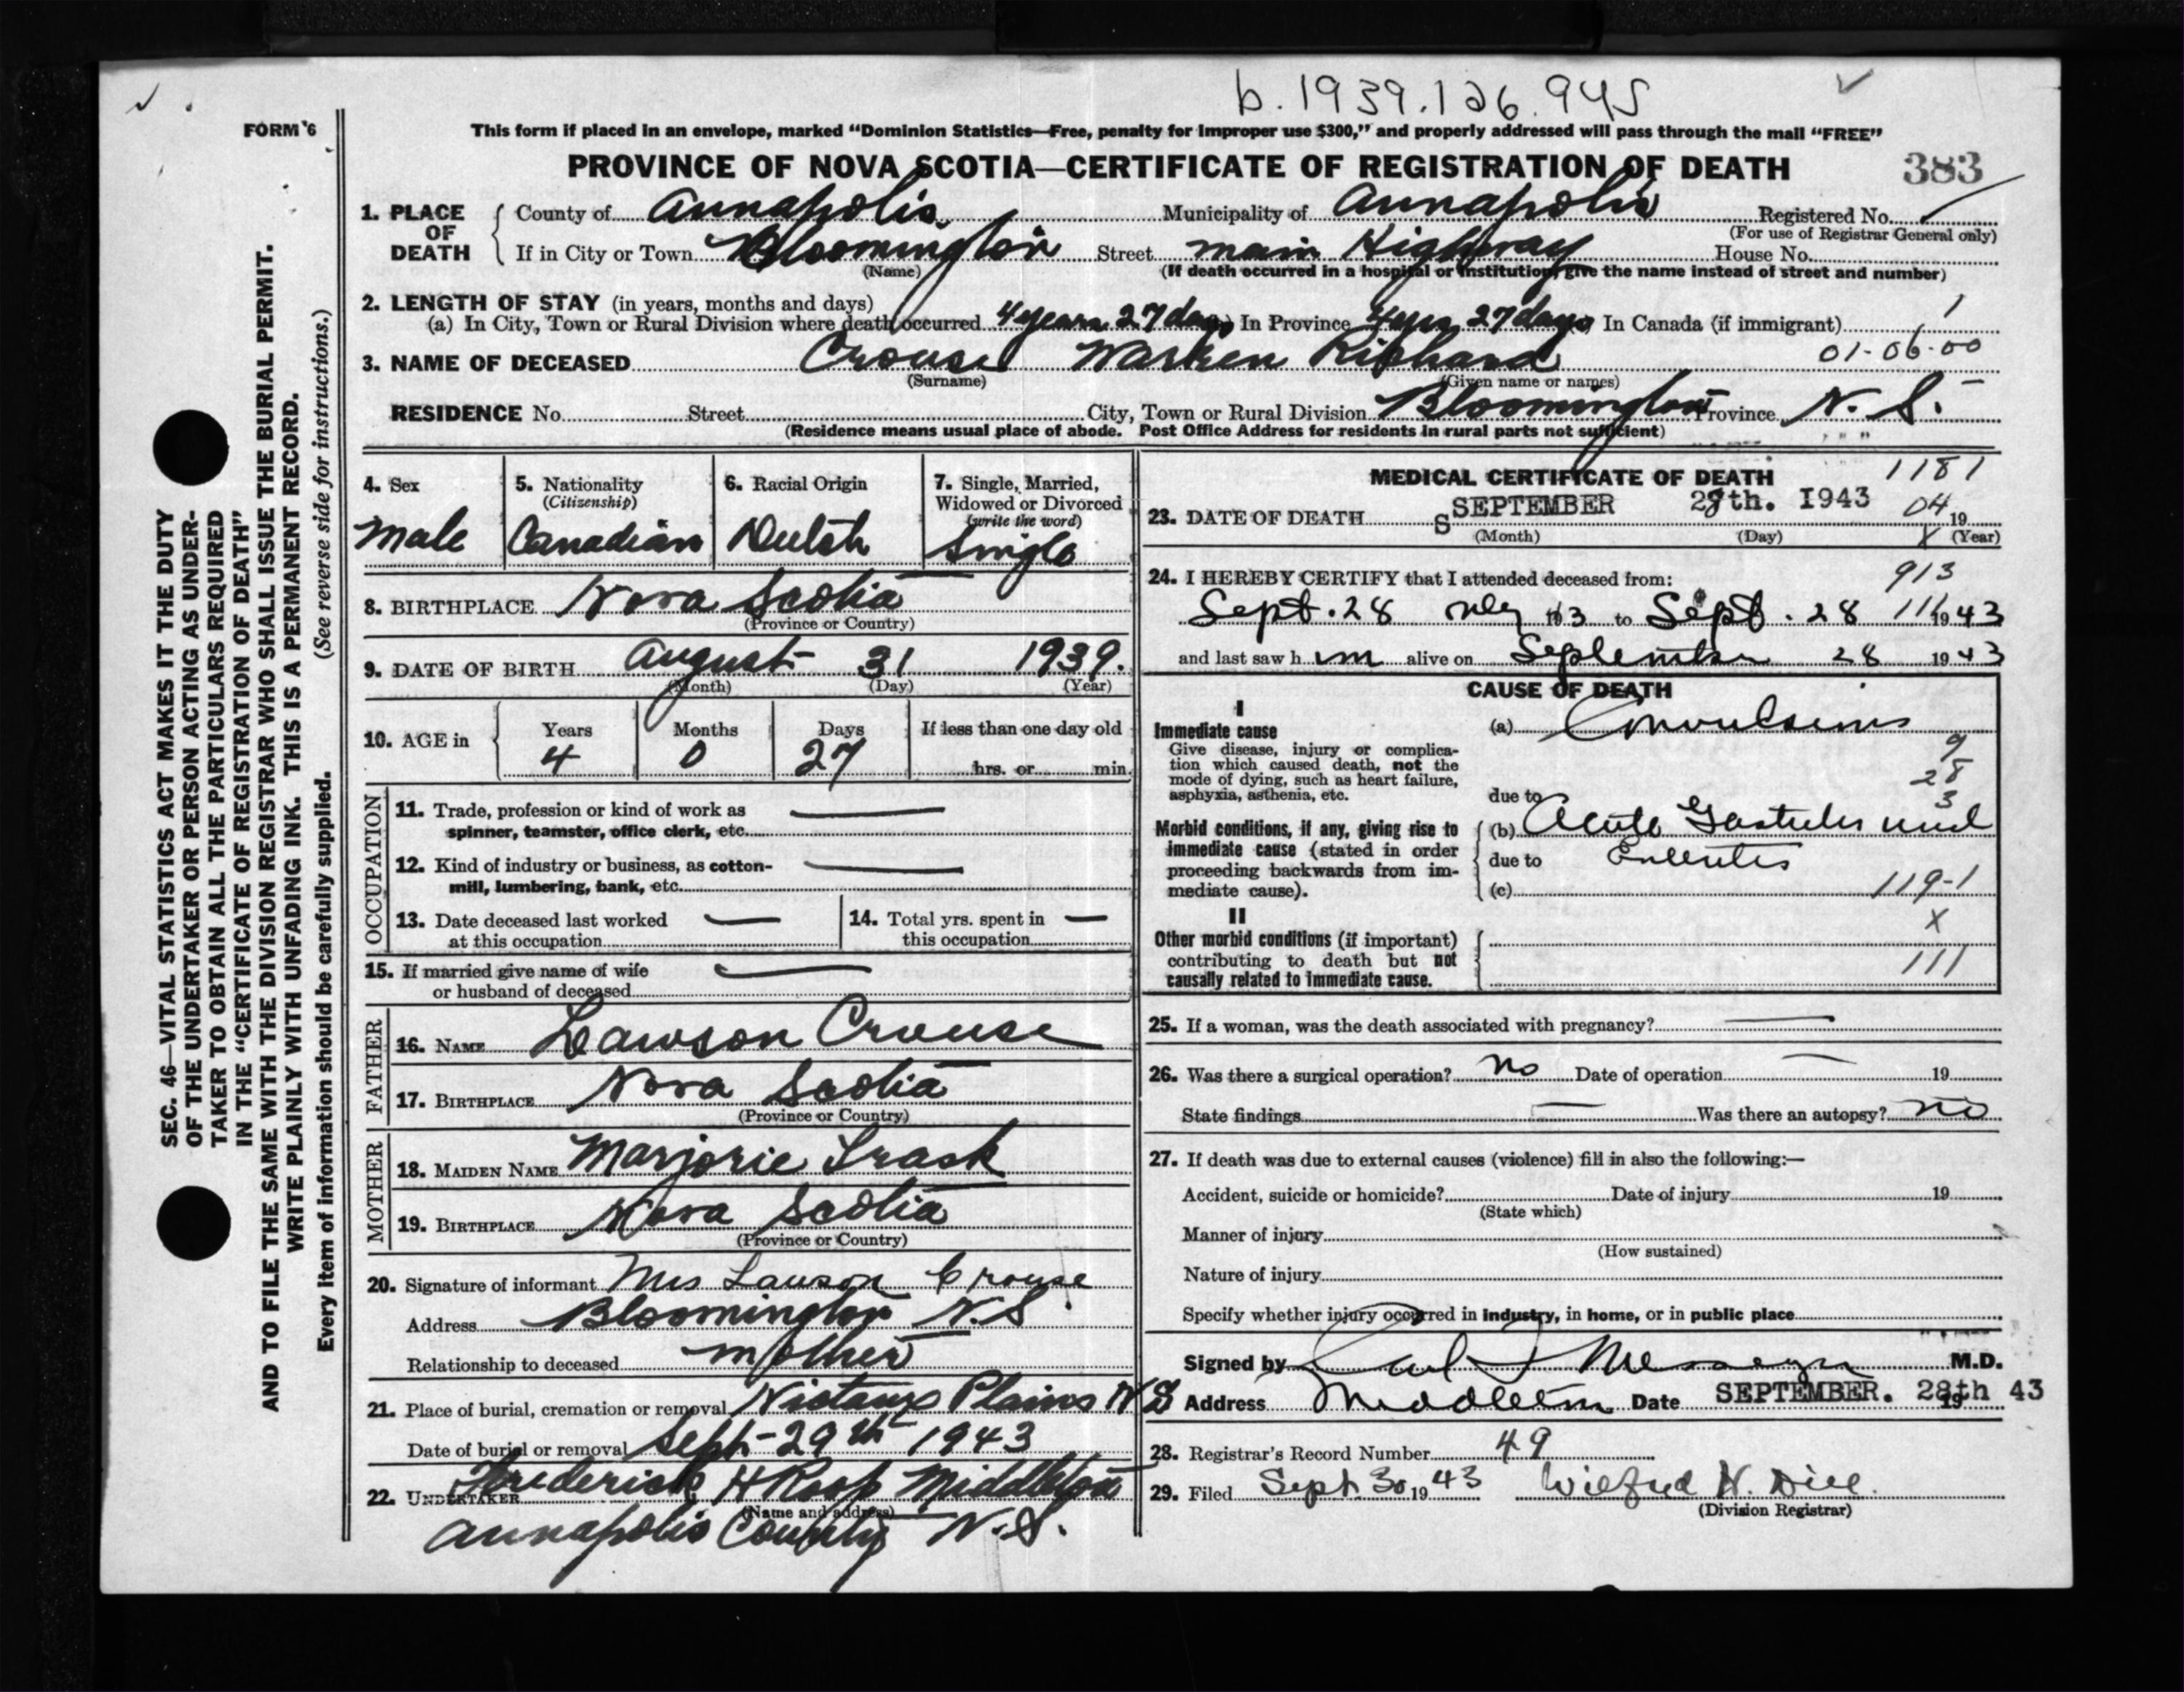 b. 1939. 126. 945
FORM 6
This form if placed in an envelope, marked "Dominion Statistics—Free, penalty for improper use $300," and properly addressed will pass through the mail "FREE"
PROVINCE OF NOVA SCOTIA—CERTIFICATE OF REGISTRATION OF DEATH
383
1. PLACE OF DEATH
County of Annapolis Municipality of Annapolis Registered No.
(For use of Registrar General only)
If in City or Town Bloomington Street main Highway House No.
(Name) (If death occurred in a hospital or institution, give the name instead of street and number)
2. LENGTH OF STAY (in years, months and days)
(a) In City, Town or Rural Division where death occurred 4 years 27 days In Province 4 yrs 27 days In Canada (if immigrant)
01-06-00
3. NAME OF DECEASED Crouse Warren Richard
(Surname) (Given name or names)
RESIDENCE No. Street City, Town or Rural Division Bloomington Province N. S.
(Residence means usual place of abode. Post Office Address for residents in rural parts not sufficient)
4. Sex
Male
5. Nationality
(Citizenship)
Canadian
6. Racial Origin
Dutch
7. Single, Married,
Widowed or Divorced
(write the word)
Single
8. BIRTHPLACE Nova Scotia
(Province or Country)
9. DATE OF BIRTH August 31 1939.
(Month) (Day) (Year)
10. AGE in Years Months Days If less than one day old
4 0 27 hrs. or min.
OCCUPATION
11. Trade, profession or kind of work as
spinner, teamster, office clerk, etc.
12. Kind of industry or business, as cotton-
mill, lumbering, bank, etc.
13. Date deceased last worked
at this occupation
14. Total yrs. spent in
this occupation
15. If married give name of wife
or husband of deceased
FATHER
16. NAME Lawson Crouse
17. BIRTHPLACE Nova Scotia
(Province or Country)
MOTHER
18. MAIDEN NAME Marjorie Trask
19. BIRTHPLACE Nova Scotia
(Province or Country)
20. Signature of informant Mrs Lawson Crouse
Address Bloomington N.S.
Relationship to deceased mother
21. Place of burial, cremation or removal Nictaux Plains N S
Date of burial or removal Sept-29th 1943
22. UNDERTAKER Frederick H Roop Middleton
(Name and address)
Annapolis County N.S.
MEDICAL CERTIFICATE OF DEATH
1181
23. DATE OF DEATH S SEPTEMBER 28th. 1943 04 19
(Month) (Day) X (Year)
24. I HEREBY CERTIFY that I attended deceased from:
913
Sept. 28 1943 to Sept. 28 111 1943
and last saw h im alive on September 28 1943
CAUSE OF DEATH
I
Immediate cause
Give disease, injury or complica-
tion which caused death, not the
mode of dying, such as heart failure,
asphyxia, asthenia, etc.
(a) Convulsions
9
28
3
due to
Morbid conditions, if any, giving rise to
immediate cause (stated in order
proceeding backwards from im-
mediate cause).
(b) Acute Gastritis and
due to Enteritis
(c) 119-1
X
II
Other morbid conditions (if important)
contributing to death but not
causally related to immediate cause.
111
25. If a woman, was the death associated with pregnancy?
26. Was there a surgical operation? No Date of operation 19
State findings Was there an autopsy? no
27. If death was due to external causes (violence) fill in also the following:—
Accident, suicide or homicide? Date of injury 19
(State which)
Manner of injury
(How sustained)
Nature of injury
Specify whether injury occurred in industry, in home, or in public place
Signed by Messenger M.D.
Address Middleton Date SEPTEMBER. 28th 19 43
28. Registrar's Record Number 49
29. Filed Sept 30 19 43 Wilfred N. Dill.
(Division Registrar)
SEC. 46—VITAL STATISTICS ACT MAKES IT THE DUTY
OF THE UNDERTAKER OR PERSON ACTING AS UNDER-
TAKER TO OBTAIN ALL THE PARTICULARS REQUIRED
IN THE "CERTIFICATE OF REGISTRATION OF DEATH"
AND TO FILE THE SAME WITH THE DIVISION REGISTRAR WHO SHALL ISSUE THE BURIAL PERMIT.
WRITE PLAINLY WITH UNFADING INK. THIS IS A PERMANENT RECORD.
Every item of information should be carefully supplied. (See reverse side for instructions.)